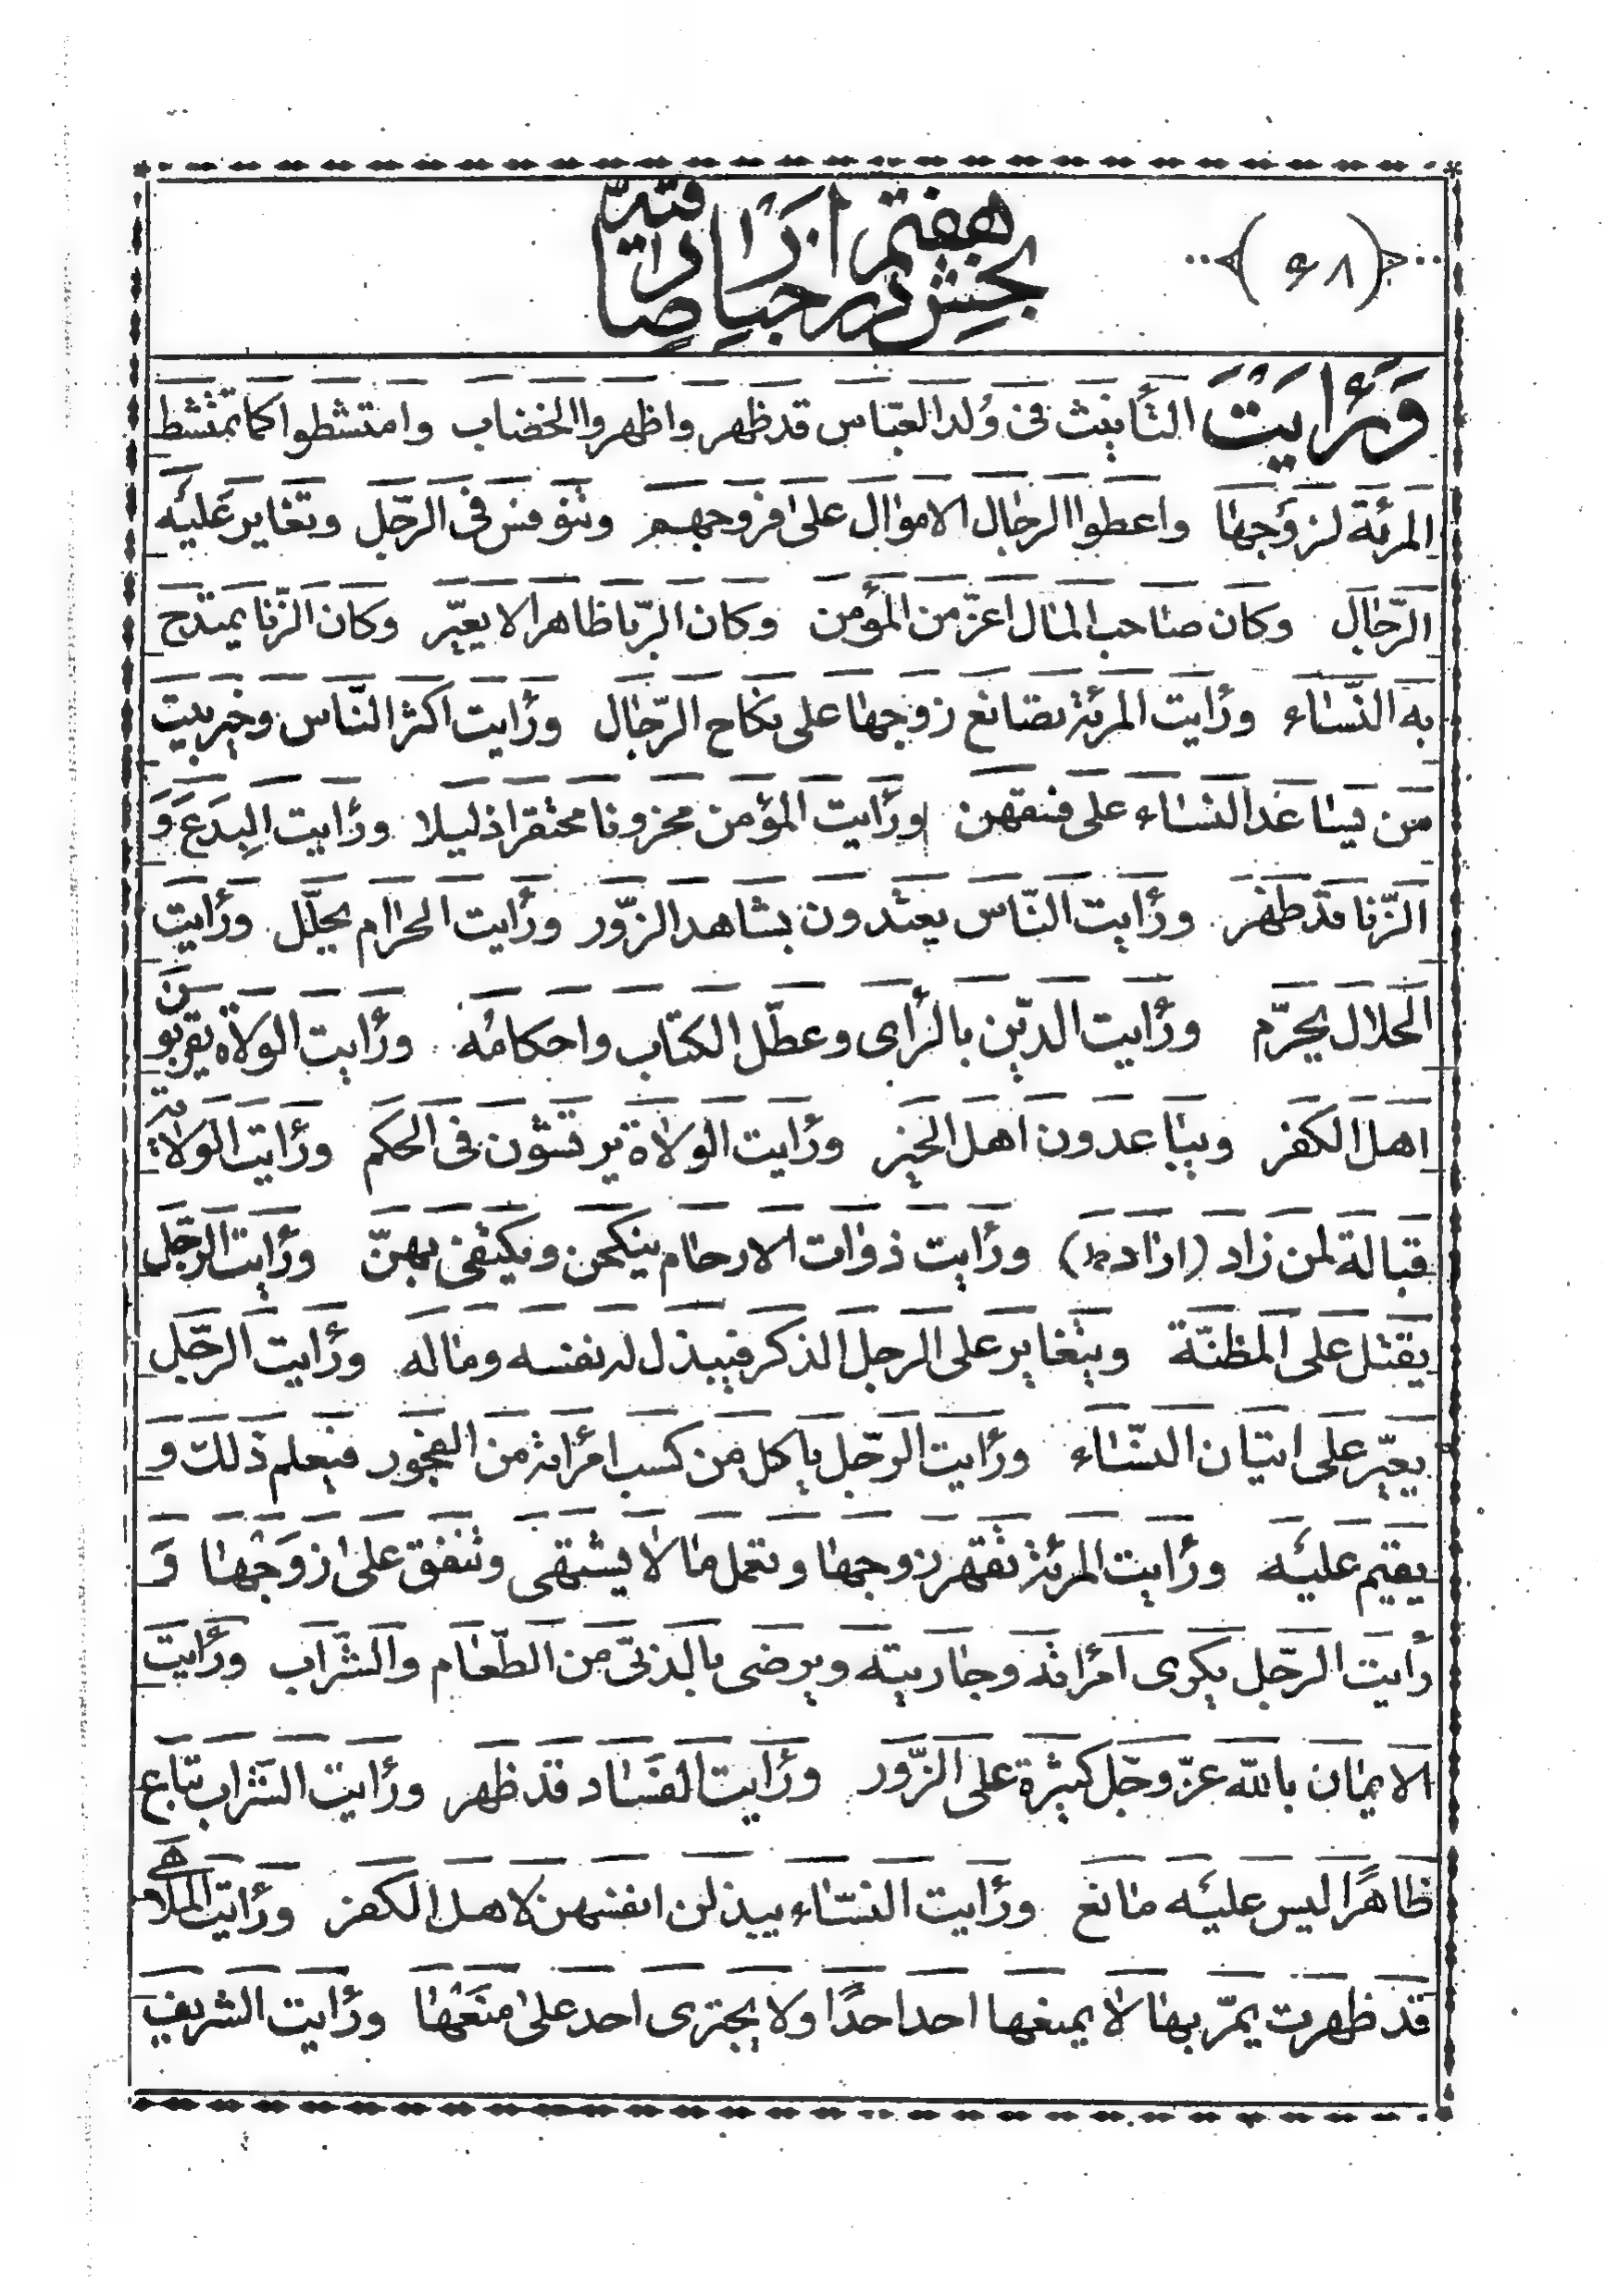 (۶۸)
بخش هفتم در اخبار صادقیّه
وَرَأیتَ التّأنیث فی وُلد العبّاس قد ظهر واظهروا الخضاب وامتشطوا کما تمتشط
المرئة لزوجها واعطوا الرجال الاموال علی فروجهم وتنوفس فی الرّجل وتغایر علیه
الرّجال وکان صاحب المال اعزّ من المؤمن وکان الرّبا ظاهرا لا یعیّر وکان الزّنا یمتدح
به النّساء ورأیت المرئة تصانع زوجها علی نکاح الرّجال ورأیت اکثر النّاس وخیر بیت
من یساعد النساء علی فسقهن ورأیت المؤمن محزونا محتقرا ذلیلا ورأیت البِدَع وَ
الزّنا قد ظهر ورأیت النّاس یعتدون بشاهد الزّور ورأیت الحرام یحلّل ورأیت
الحلال یحرّم ورأیت الدّین بالرّأی وعطّل الکتاب واحکامُه ورأیت الولاة یقربون
اهل الکفر ویباعدون اهل الخیر ورأیت الولاة یرتشون فی الحکم ورأیت الولایة
قبالة لمن زاد (اراد ط) ورأیت ذوات الارحام ینکحن ویکتفی بهنّ ورأیت الرّجل
یقتل علی المظنّة ویتغایر علی الرجل الذکر فیبذل له نفسه وماله ورأیت الرّجل
یعیّر علی اتیان النّساء ورأیت الرّجل یاکل من کسب امرأته من الفجور فیعلم ذلك و
یقیم علیه ورأیت المرئة تقهر زوجها وتعمل ما لا یشتهی وتنفق علی زوجها وَ
رأیت الرّجل یکری امرأته وجاریته ویرضی بالدّنیّ من الطّعام والشّراب ورأیت
الایمان بالله عزّ وجّل کثیرة علی الزّور ورأیت الفساد قد ظهر ورأیت الشّراب تباع
ظاهرًا لیس علیه مانع ورأیت النّساء یبذلن انفسهن لاهل الکفر ورأیت الملاهی
قد ظهرت یمرّ بها لا یمنعها احد احدًا ولا یجتری احد علی منعها ورأیت الشریف